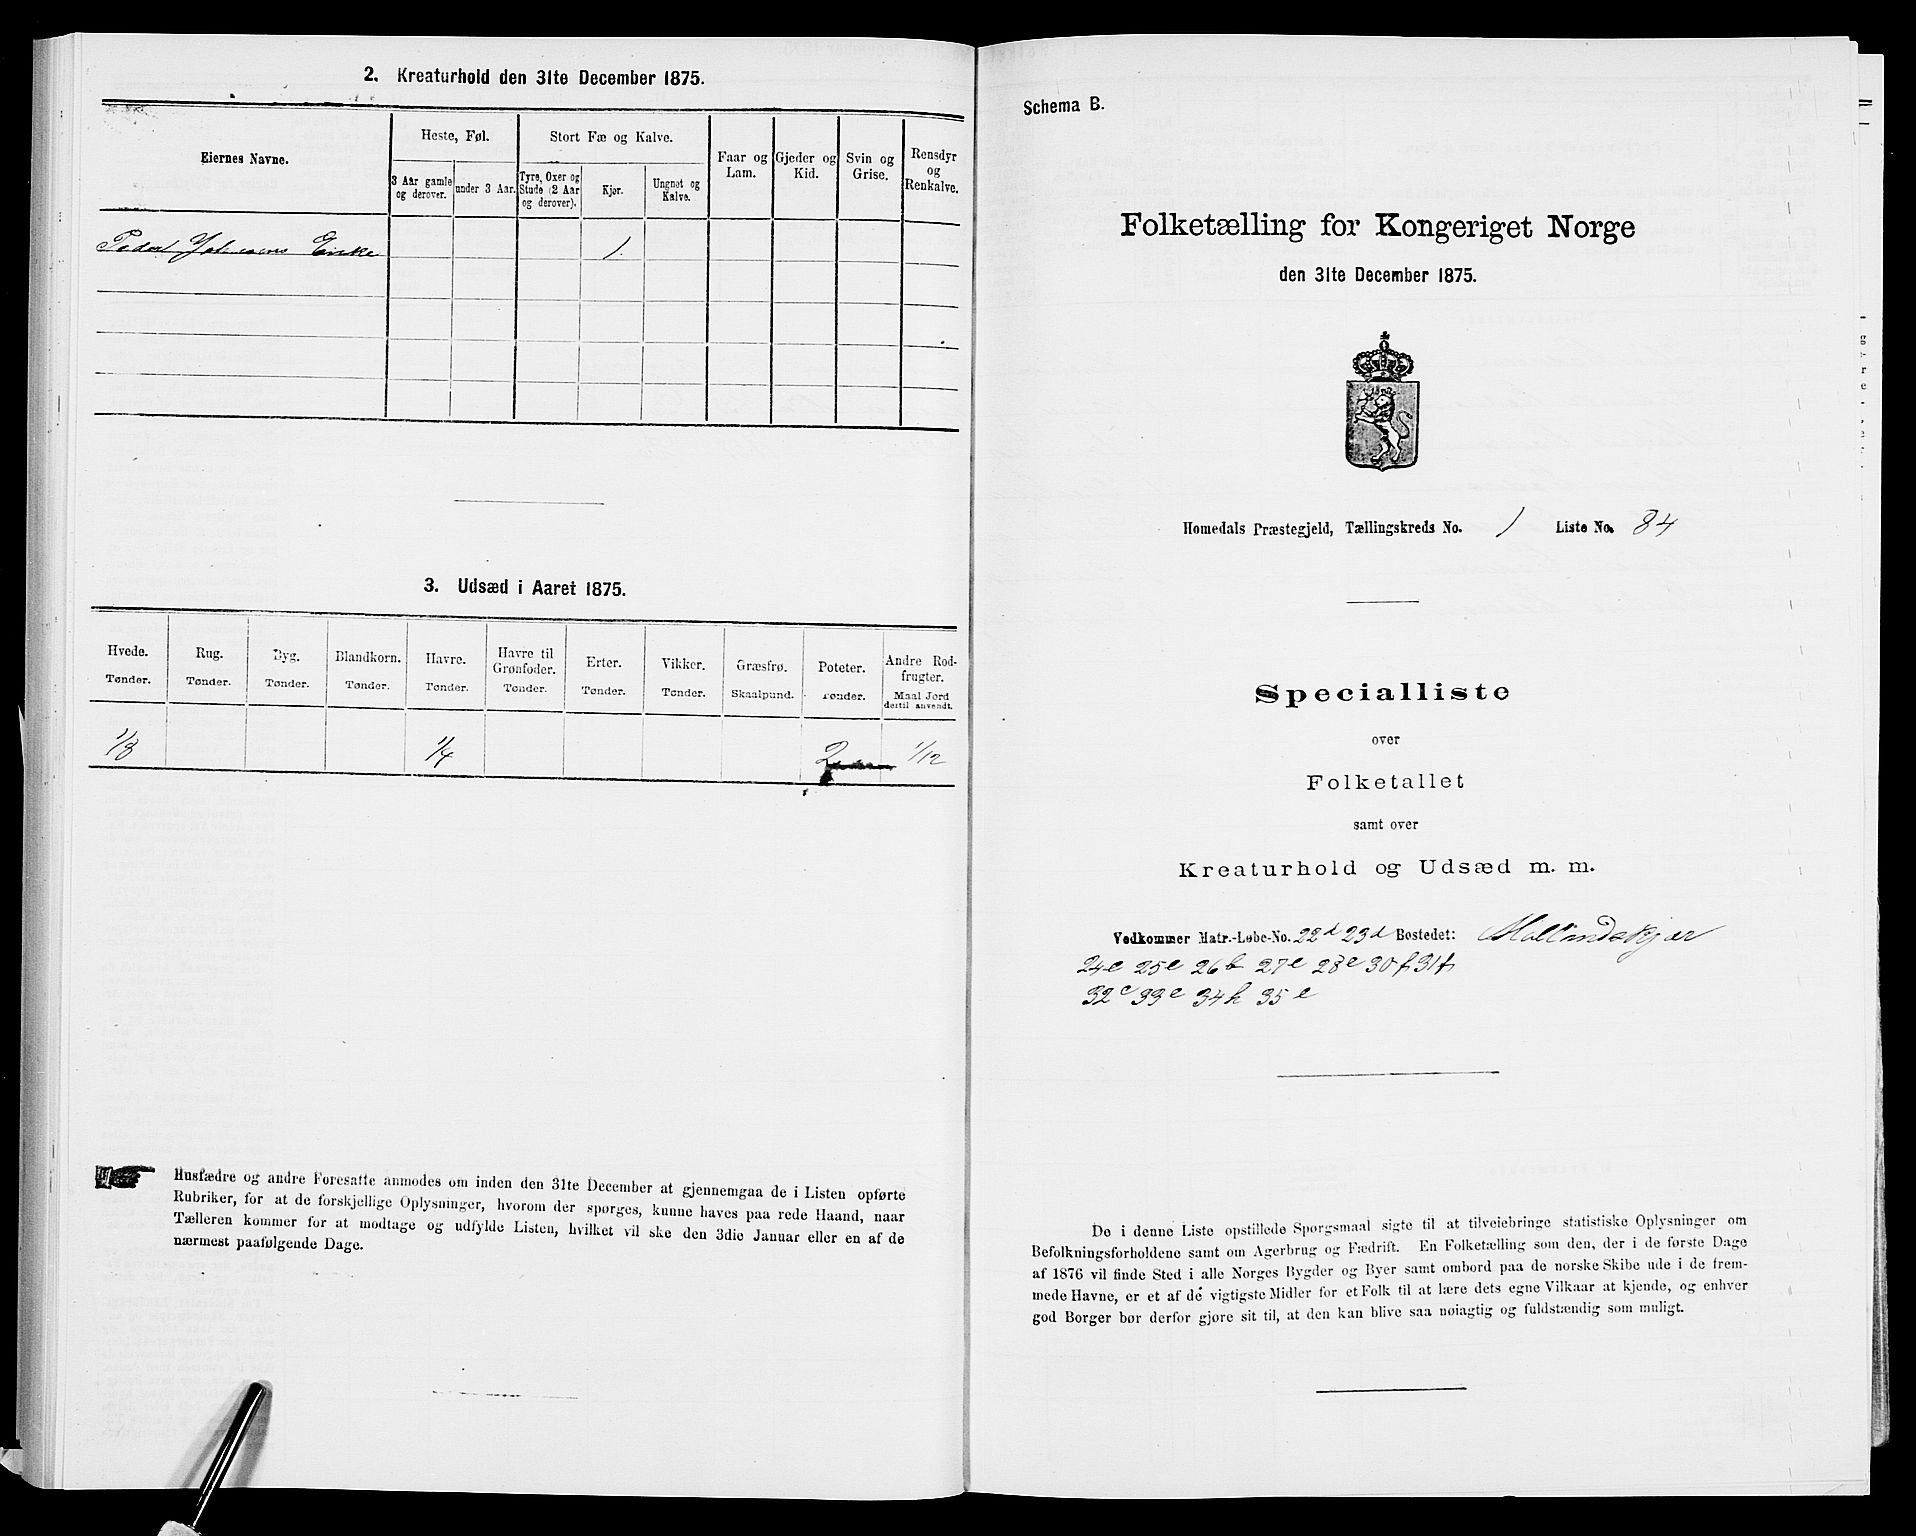 2. Kreaturhold den 31te December 1875.
Eiernes Navne.
Heste, Føl.
3 Aar gamle og derover.
under 3 Aar.
Stort Fæ og Kalve.
Tyre, Oxer og Stude (2 Aar og derover).
Kjør.
Ungnøt og Kalve.
Faar og Lam.
Gjeder og Kid.
Svin og Grise.
Rensdyr og Renkalve.
Peder Johnsens Enke 1.
3. Udsæd i Aaret 1875.
Hvede. Tønder.
Rug. Tønder.
Byg. Tønder.
Blandkorn. Tønder.
Havre. Tønder.
Havre til Grønfoder. Tønder.
Erter. Tønder.
Vikker. Tønder.
Græsfrø. Skaalpund.
Poteter. Tønder.
Andre Rodfrugter. Maal Jord dertil anvendt.
1/8 1/4 2 1/12
Husfædre og andre Foresatte anmodes om inden den 31te December at gjennemgaa de i Listen opførte
Rubriker, for at de forskjellige Oplysninger, hvorom der spørges, kunne haves paa rede Haand, naar
Tælleren kommer for at modtage og udfylde Listen, hvilket vil ske den 3die Januar eller en af de
nærmest paafølgende Dage.
Schema B.
Folketælling for Kongeriget Norge
den 31te December 1875.
Homedals Præstegjeld, Tællingskreds No. 1 Liste No. 84
Specialliste
over
Folketallet
samt over
Kreaturhold og Udsæd m. m.
Vedkommer Matr.-Løbe-No. 22d 23d Bostedet: Mollandskjær
24e 25e 26b 27e 28e 30f 31f
32c 33e 34h 35e
De i denne Liste opstillede Spørgsmaal sigte til at tilveiebringe statistiske Oplysninger om
Befolkningsforholdene samt om Agerbrug og Fædrift. En Folketælling som den, der i de første Dage
af 1876 vil finde Sted i alle Norges Bygder og Byer samt ombord paa de norske Skibe ude i de frem-
mede Havne, er et af de vigtigste Midler for et Folk til at lære dets egne Vilkaar at kjende, og enhver
god Borger bør derfor gjøre sit til, at den kan blive saa nøiagtig og fuldstændig som muligt.